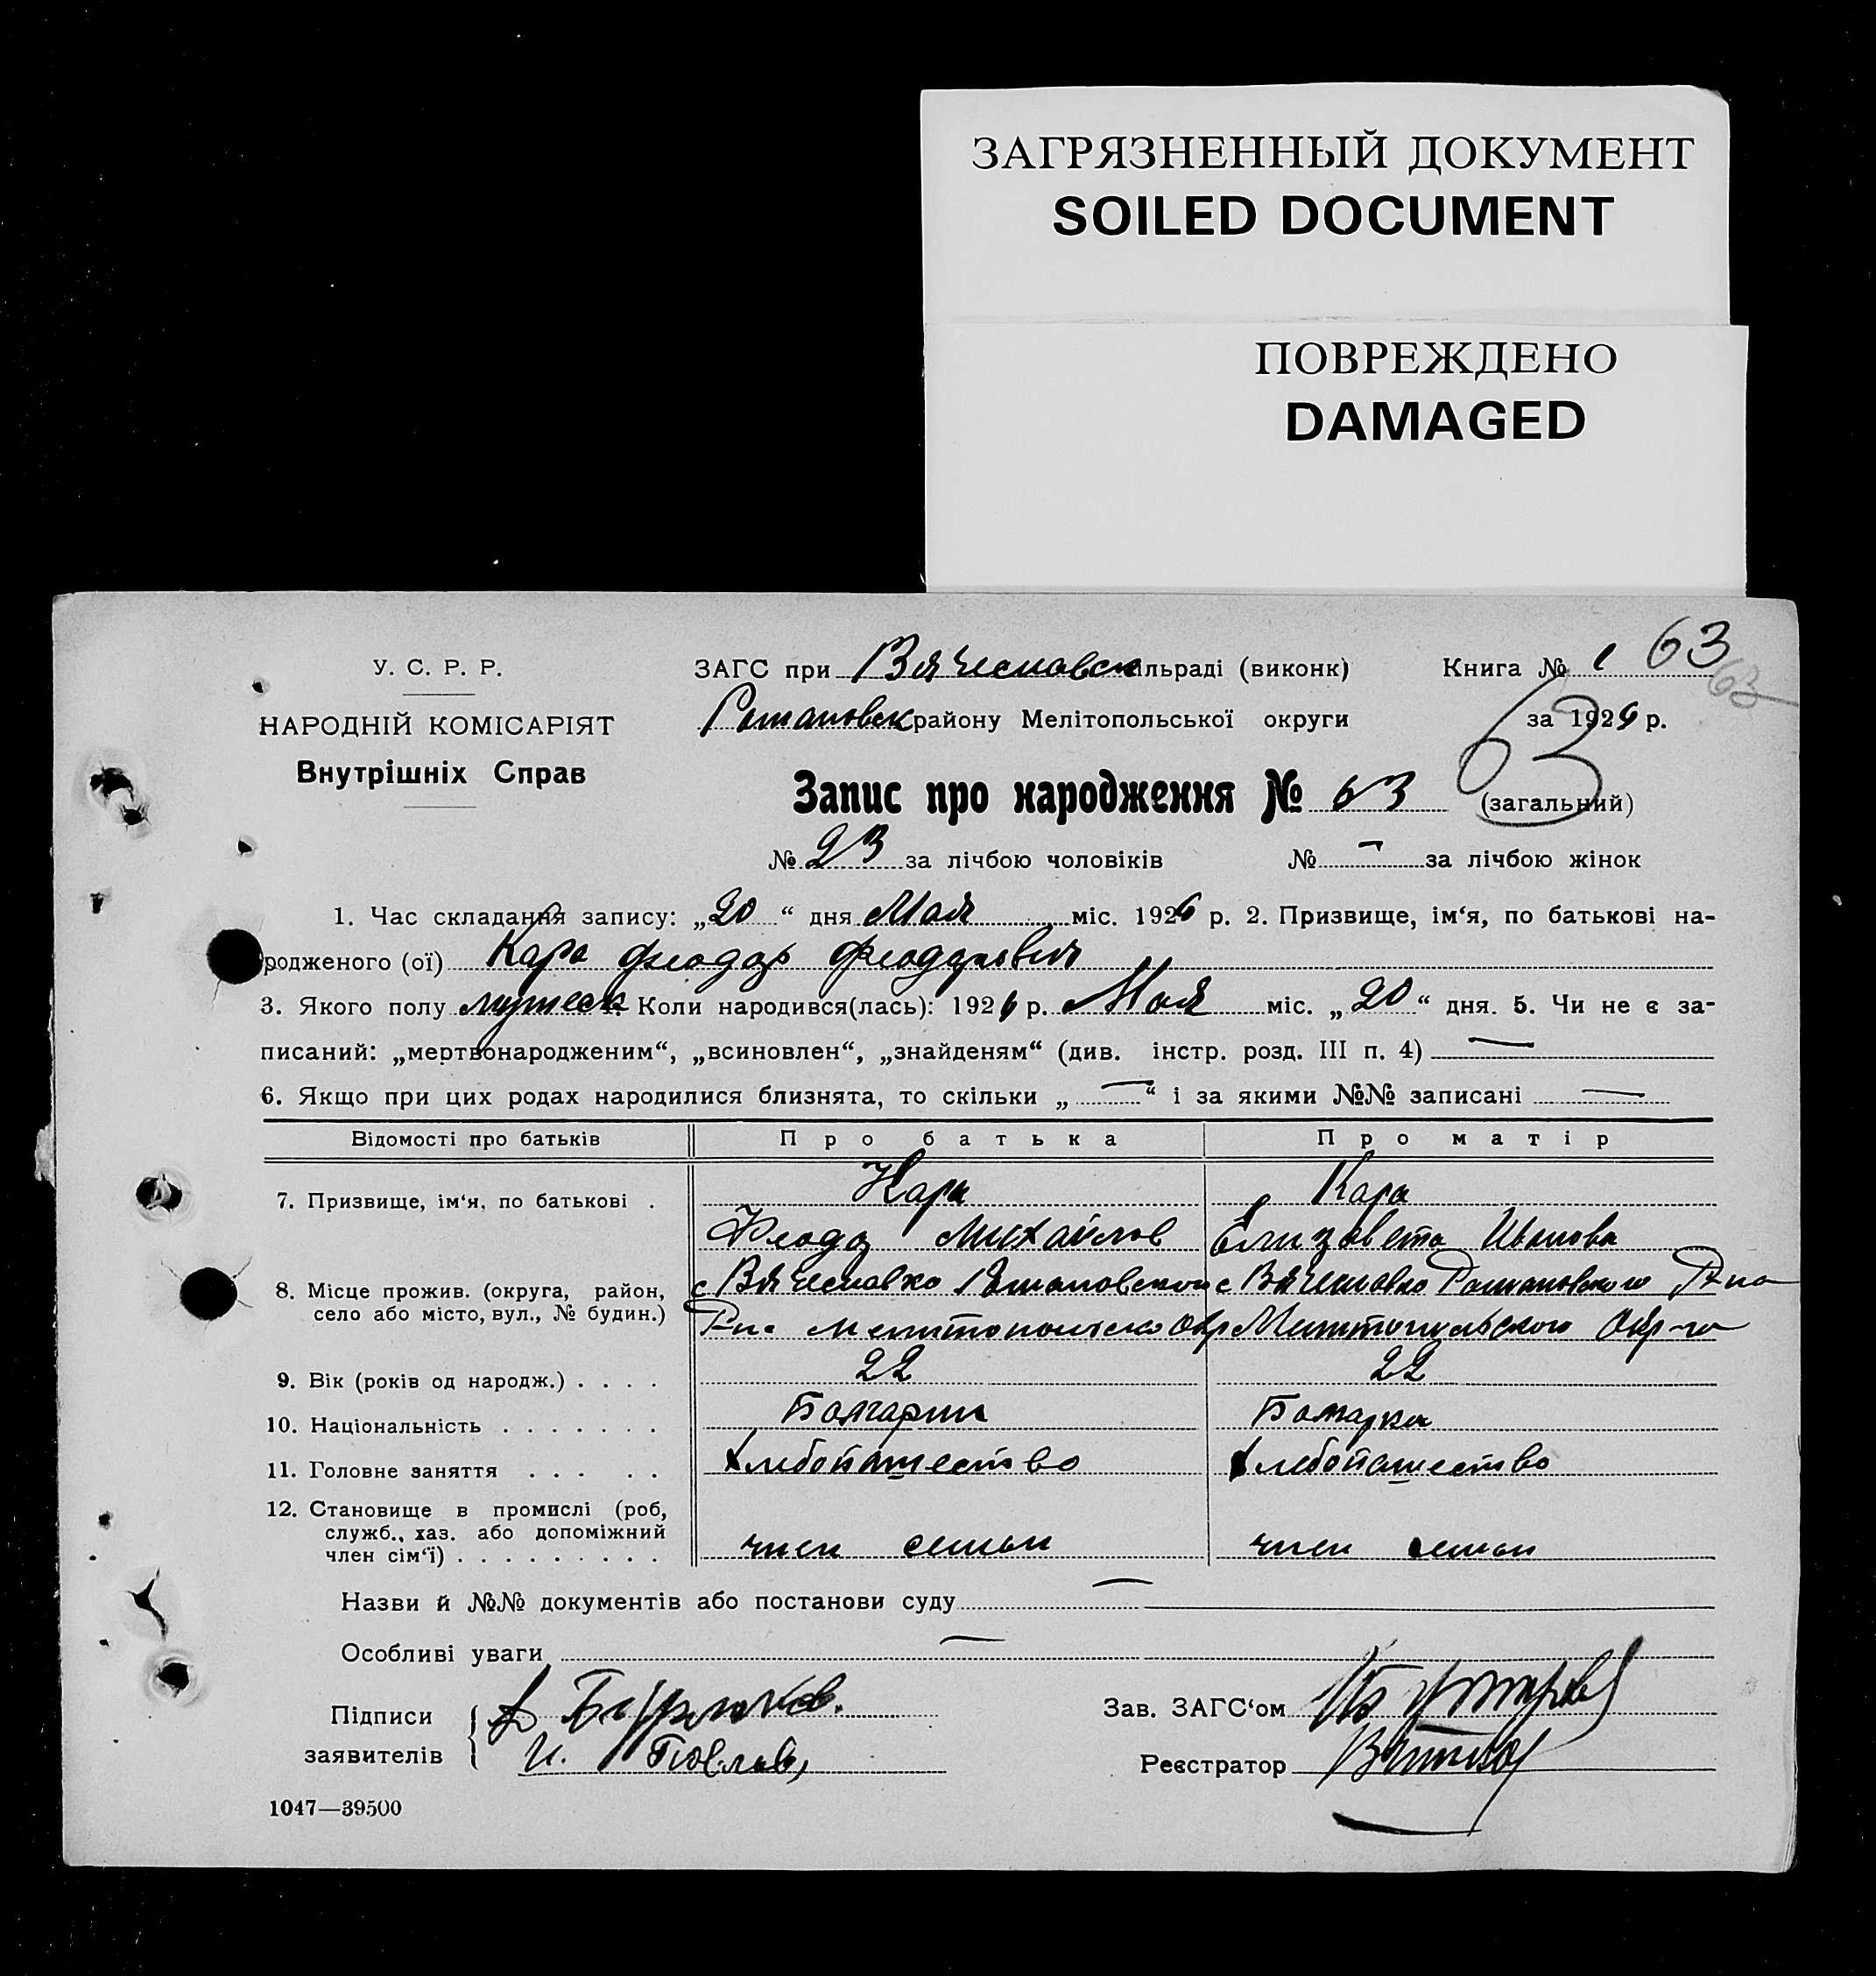 ЗАГРЯЗНЕННЫЙ ДОКУМЕНТ
SOILED DOCUMENT
ПОВРЕЖДЕНО
DAMAGED
63
63
У. С. Р. Р.
ЗАГС при Вячеславск ільраді (виконк)
Книга № 1
НАРОДНІЙ КОМІСАРІЯТ
Романовск району Мелітопольської округи
за 1926 р.
Внутрішніх Справ
63
Запис про народження № 63 (загальний)
№ 23 за лічбою чоловіків № — за лічбою жінок
1. Час складання запису: „20“ дня Мая міс. 1926 р. 2. Призвище, ім‘я, по батькові на-
родженого (ої) Кара Феодор Феодорович
3. Якого полу мужеск 4. Коли народився(лась): 1926 р. Мая міс. „20“ дня. 5. Чи не є за-
писаний: „мертвонародженим“, „всиновлен“, „знайденям“ (див. інстр. розд. III п. 4) —
6. Якщо при цих родах народилися близнята, то скільки „—“ і за якими №№ записані —
Відомості про батьків Про батька Про матір
7. Призвище, ім‘я, по батькові . Кара Кара
Феодор Михайлов Елизавета Иванова
8. Місце прожив. (округа, район, с Вячеславка Романовского с Вячеславка Романовского Р-на
село або місто, вул., № будин.) Р-на Мелитопольско Окр Мелитопольского Окр-га
9. Вік (років од народж.) . . . . 22 22
10. Національність . . . . . . . Болгарин Болгарка
11. Головне заняття . . . . . Хлебопашество Хлебопашество
12. Становище в промислі (роб,
служб., хаз. або допоміжний
член сім‘ї) . . . . . . . . . член семьи член семьи
Назви й №№ документів або постанови суду —
Особливі уваги —
Підписи
Зав. ЗАГС‘ом
заявителів И.
Реєстратор
1047—39500